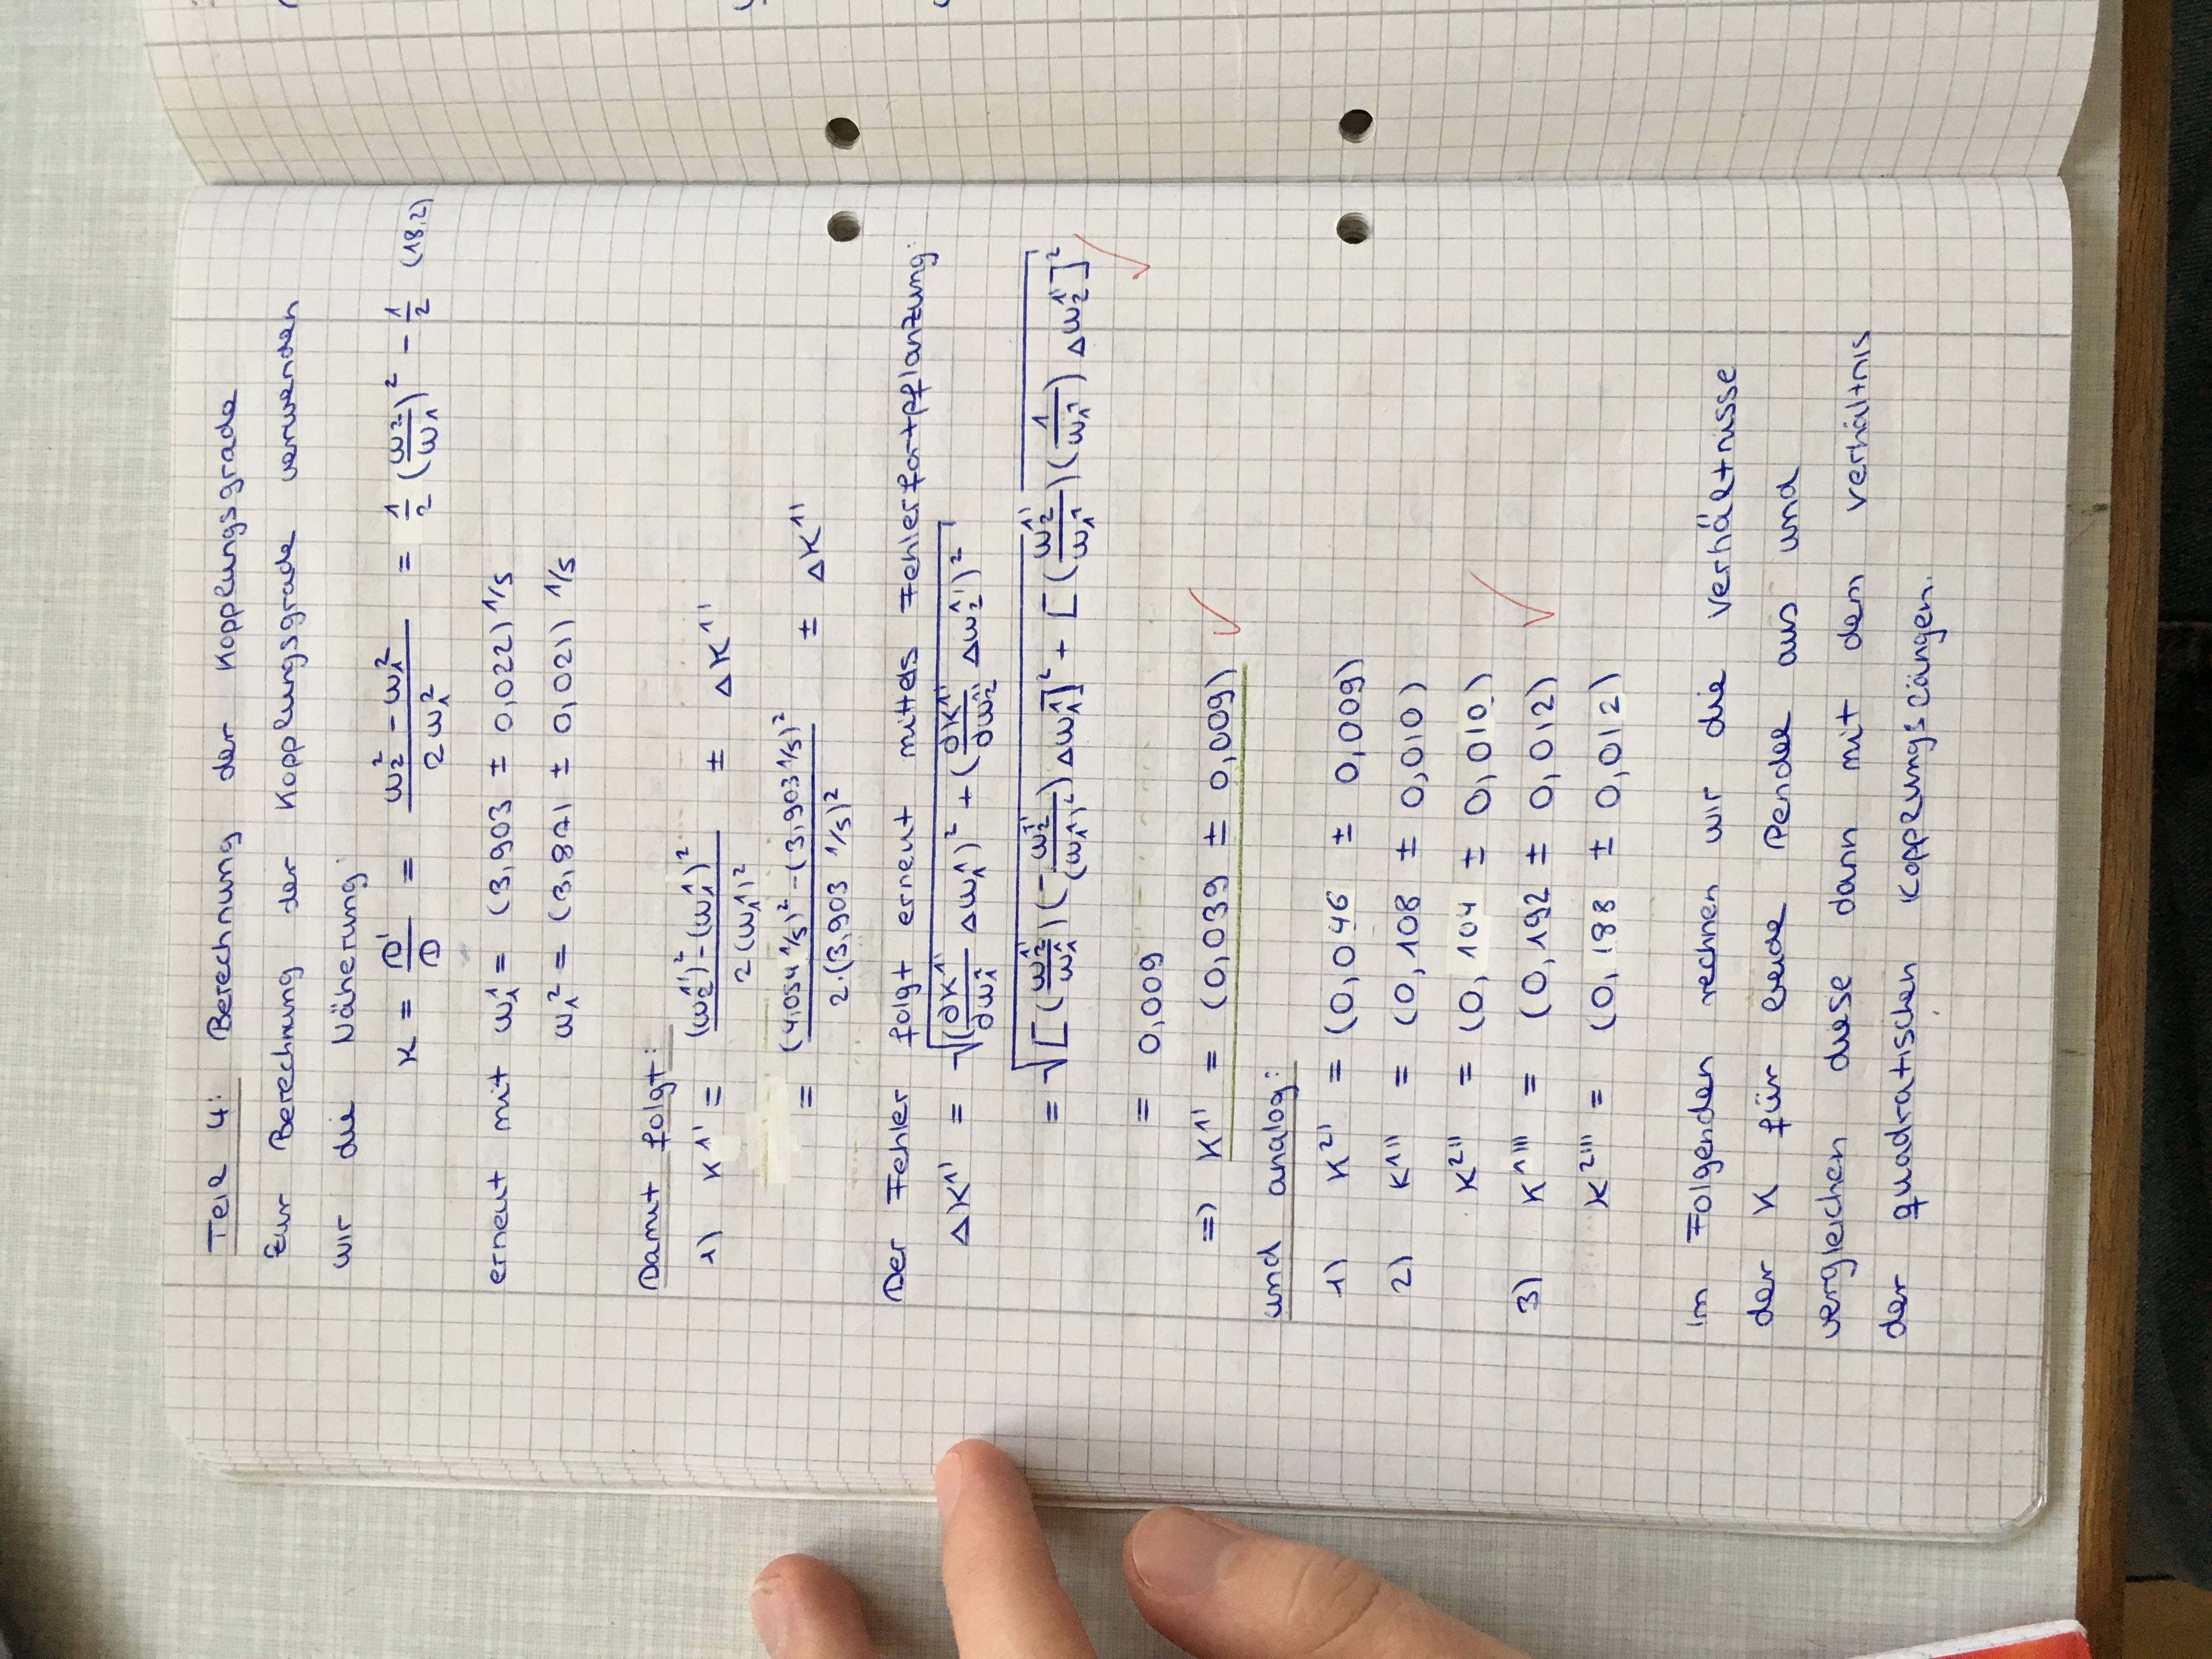 Teil 4: Berechnung der Kopplungsgrade
Zur Berechnung der Kopplungsgrade verwenden
wir die Näherung:
K = D'/D = (ω₂² - ω₁²)/(2ω₁²) = 1/2 (ω₂/ω₁)² - 1/2 (18.2)
erneut mit ω₁¹ = (3,903 ± 0,022) 1/s
ω₁² = (3,871 ± 0,021) 1/s
Damit folgt:
1) K¹' = ((ω₂¹')² - (ω₁¹)²)/(2(ω₁¹)²) ± ΔK¹'
= ((4,054 1/s)² - (3,903 1/s)²)/(2·(3,903 1/s)²) ± ΔK¹'
Der Fehler folgt erneut mittels Fehlerfortpflanzung:
ΔK¹' = √((∂K¹'/∂ω₁¹ Δω₁¹)² + (∂K¹'/∂ω₂¹' Δω₂¹')²)
= √([(ω₂¹'/ω₁¹)(-ω₂¹'/(ω₁¹)²) Δω₁¹]² + [(ω₂¹'/ω₁¹)(1/ω₁¹) Δω₂¹']²)
= 0,009
=> K¹' = (0,039 ± 0,009)
und analog:
1) K²' = (0,046 ± 0,009)
2) K¹'' = (0,108 ± 0,010)
K²'' = (0,104 ± 0,010)
3) K¹''' = (0,192 ± 0,012)
K²''' = (0,188 ± 0,012)
Im Folgenden rechnen wir die Verhältnisse
der K für beide Pendel aus und
vergleichen diese dann mit dem Verhältnis
der quadratischen Kopplungslängen.